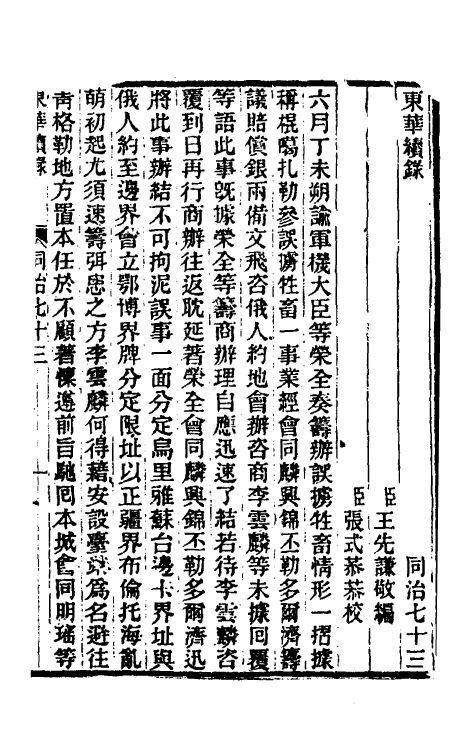 東華續錄
同治七十三
臣王先謙敬編
臣張式恭恭校
六月丁未朔諭軍機大臣等榮全奏籌辦誤擄牲畜情形一摺據
稱棍噶扎勒參誤擄牲畜一事業經會同麟興錦丕勒多爾濟籌
議賠償銀兩備文飛咨俄人約地會辦咨商李雲麟等未據回覆
等語此事既據榮全等籌商辦理自應迅速了結若待李雲麟咨
覆到日再行商辦往返耽延著榮全會同麟興錦丕勒多爾濟迅
將此事辦結不可拘泥誤事一面分定烏里雅蘇台邊卡界址與
俄人約至邊界會立鄂博界牌分定限址以正疆界布倫托海亂
萌初起尤須速籌弭患之方李雲麟何得藉安設臺站為名避往
青格勒地方置本任於不顧著懍遵前旨馳回本城會同明瑤等
東華續錄
同治七十三
一